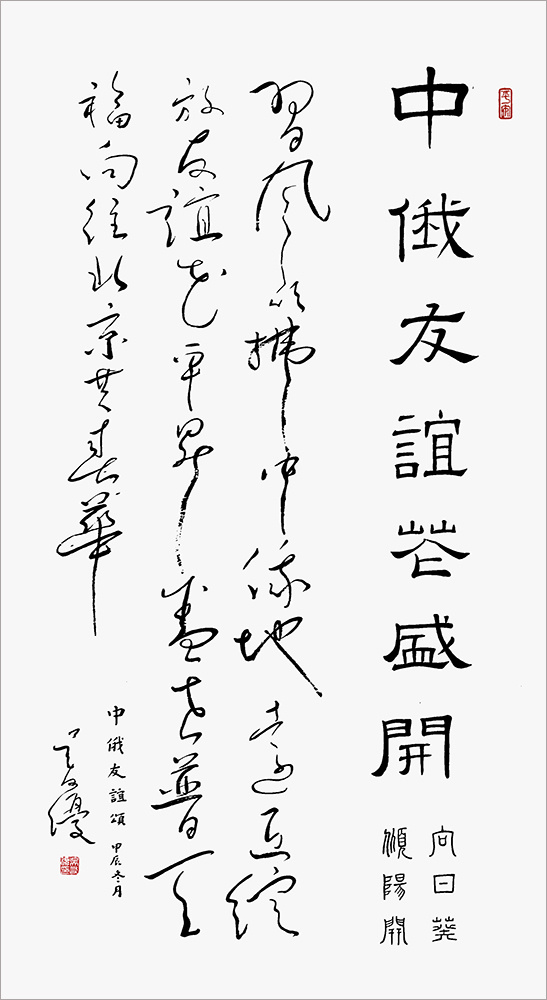 中俄友誼花盛開
向日葵
傾陽開
習風欣拂中俄地遠近綻
放友誼花平昇盛世普天
福向往北京共春華
中俄友誼頌 甲辰冬月